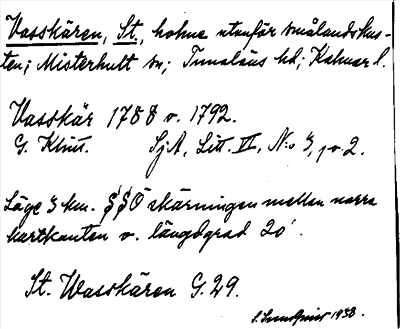 Vasskären, St., holme utanför smålandskus-
ten; Misterhult sn; Tunaläns hd; Kalmar l.
Vasskär 1788 o. 1792.
G. Klint. SjA, Litt. II, N:o 3, 1 o. 2.
Läge 3 km. SSO skärningen mellan norra
kartkanten o. längdgrad 20'.
St. Wasskären G. 29.
1938.